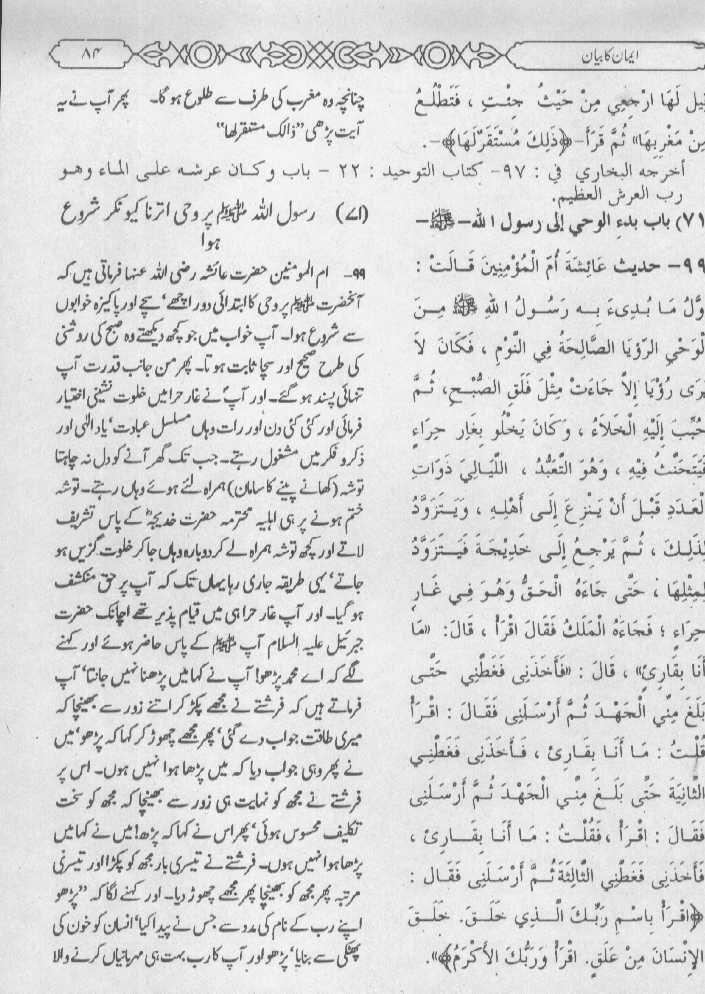 ایمان کا بیان
۸۴
قيل لَهَا ارْجِعِي مِنْ حَيْثُ جِئْتِ ، فَتَطْلُعُ
مِنْ مَغْرِبِهَا» ثُمَّ قَرَأَ - ﴿ذَلِكَ مُسْتَقَرٌّ لَهَا﴾ -.
أخرجه البخاري في : ٩٧- كتاب التوحيد : ٢٢ - باب وكان عرشه على الماء وهو
رب العرش العظيم.
(٧١) باب بدء الوحي إلى رسول الله – ﷺ –
٩٩- حديث عَائِشَةَ أُمِّ الْمُؤْمِنِينَ قَالَتْ :
وَّلُ مَا بُدِىءَ بِهِ رَسُولُ اللهِ ﷺ مِنَ
لْوَحْيِ الرُّؤْيَا الصَّالِحَةُ فِي النَّوْمِ ، فَكَانَ لاَ
يَرَى رُؤْيَا إِلاَّ جَاءَتْ مِثْلَ فَلَقِ الصُّبْحِ، ثُمَّ
حُبِّبَ إِلَيْهِ الْخَلَاءُ ، وَكَانَ يَخْلُو بِغَارِ حِرَاءٍ
فَيَتَحَنَّثُ فِيْهِ ، وَهُوَ التَّعَبُّدُ ، اللَّيَالِيَ ذَوَاتِ
لْعَدَدِ قَبْلَ أَنْ يَنْزِعَ إِلَى أَهْلِهِ ، وَيَتَزَوَّدُ
لِذَلِكَ ، ثُمَّ يَرْجِعُ إِلَى خَدِيْجَةَ فَيَتَزَوَّدُ
لِمِثْلِهَا ، حَتَّى جَاءَهُ الْحَقُّ وَهُوَ فِي غَارِ
حِرَاءٍ ؛ فَجَاءَهُ الْمَلَكُ فَقَالَ اقْرَأْ ، قَالَ: «مَا
أَنَا بِقَارِئٍ» ، قَالَ : «فَأَخَذَنِى فَغَطَّنِي حَتَّى
بَلَغَ مِنِّي الْجَهْدَ ثُمَّ أَرْسَلَنِى فَقَالَ : اقْرَأْ
قُلْتُ : مَا أَنَا بِقَارِئ ، فَأَخَذَنِى فَغَطَّنِي
الثَّانِيَةَ حَتَّى بَلَغَ مِنِّي الْجَهْدَ ثُمَّ أَرْسَلَنِى
فَقَالَ : اقْرَأْ ، فَقُلْتُ : مَا أَنَا بِقَارِئ ،
فَأَخَذَنِى فَغَطَّنِي الثَّالِثَةَ ثُمَّ أَرْسَلَنِى فَقَالَ :
﴿اقْرَأْ بِاسْمِ رَبِّكَ الَّذِي خَلَقَ. خَلَقَ
الإِنْسَانَ مِنْ عَلَقٍ. اقْرَأْ وَرَبُّكَ الأَكْرَمُ﴾».
چنانچہ وہ مغرب کی طرف سے طلوع ہو گا۔ پھر آپ نے یہ
آیت پڑھی ’’ذالک مستقر لھا‘‘
(۷۱) رسول اللہ ﷺ پر وحی اترنا کیونکر شروع
ہوا
۹۹۔ ام المومنین حضرت عائشہ رضی اللہ عنہا فرماتی ہیں کہ
آنحضرت ﷺ پر وحی کا ابتدائی دور اچھے‘ سچے اور پاکیزہ خوابوں
سے شروع ہوا۔ آپ خواب میں جو کچھ دیکھتے وہ صبح کی روشنی
کی طرح صحیح اور سچا ثابت ہوتا۔ پھر من جانب قدرت آپ
تنہائی پسند ہو گئے۔ اور آپ نے غار حرا میں خلوت نشینی اختیار
فرمائی اور کئی کئی دن اور رات وہاں مسلسل عبادت‘ یاد الٰہی اور
ذکر و فکر میں مشغول رہتے۔ جب تک گھر آنے کو دل نہ چاہتا
توشہ (کھانے پینے کا سامان) ہمراہ لئے ہوئے وہاں رہتے۔ توشہ
ختم ہونے پر ہی اہلیہ محترمہ حضرت خدیجہؓ کے پاس تشریف
لاتے اور کچھ توشہ ہمراہ لے کر دوبارہ وہاں جا کر خلوت گزیں ہو
جاتے‘ یہی طریقہ جاری رہا یہاں تک کہ آپ پر حق منکشف
ہو گیا۔ اور آپ غار حرا ہی میں قیام پذیر تھے اچانک حضرت
جبرئیل علیہ السلام آپ ﷺ کے پاس حاضر ہوئے اور کہنے
لگے کہ اے محمد پڑھو! آپ نے کہا میں پڑھنا نہیں جانتا‘ آپ
فرماتے ہیں کہ فرشتے نے مجھے پکڑ کر اتنے زور سے بھینچا کہ
میری طاقت جواب دے گئی‘ پھر مجھے چھوڑ کر کہا کہ پڑھو‘ میں
نے پھر وہی جواب دیا کہ میں پڑھا ہوا نہیں ہوں۔ اس پر
فرشتے نے مجھ کو نہایت ہی زور سے بھینچا کہ مجھ کو سخت
تکلیف محسوس ہوئی‘ پھر اس نے کہا کہ پڑھ! میں نے کہا میں
پڑھا ہوا نہیں ہوں۔ فرشتے نے تیسری بار مجھ کو پکڑا اور تیسری
مرتبہ پھر مجھ کو بھینچا پھر مجھے چھوڑ دیا۔ اور کہنے لگا کہ ’’پڑھو
اپنے رب کے نام کی مدد سے جس نے پیدا کیا‘ انسان کو خون کی
پھٹکی سے بنایا‘ پڑھو اور آپ کا رب بہت ہی مہربانیاں کرنے والا